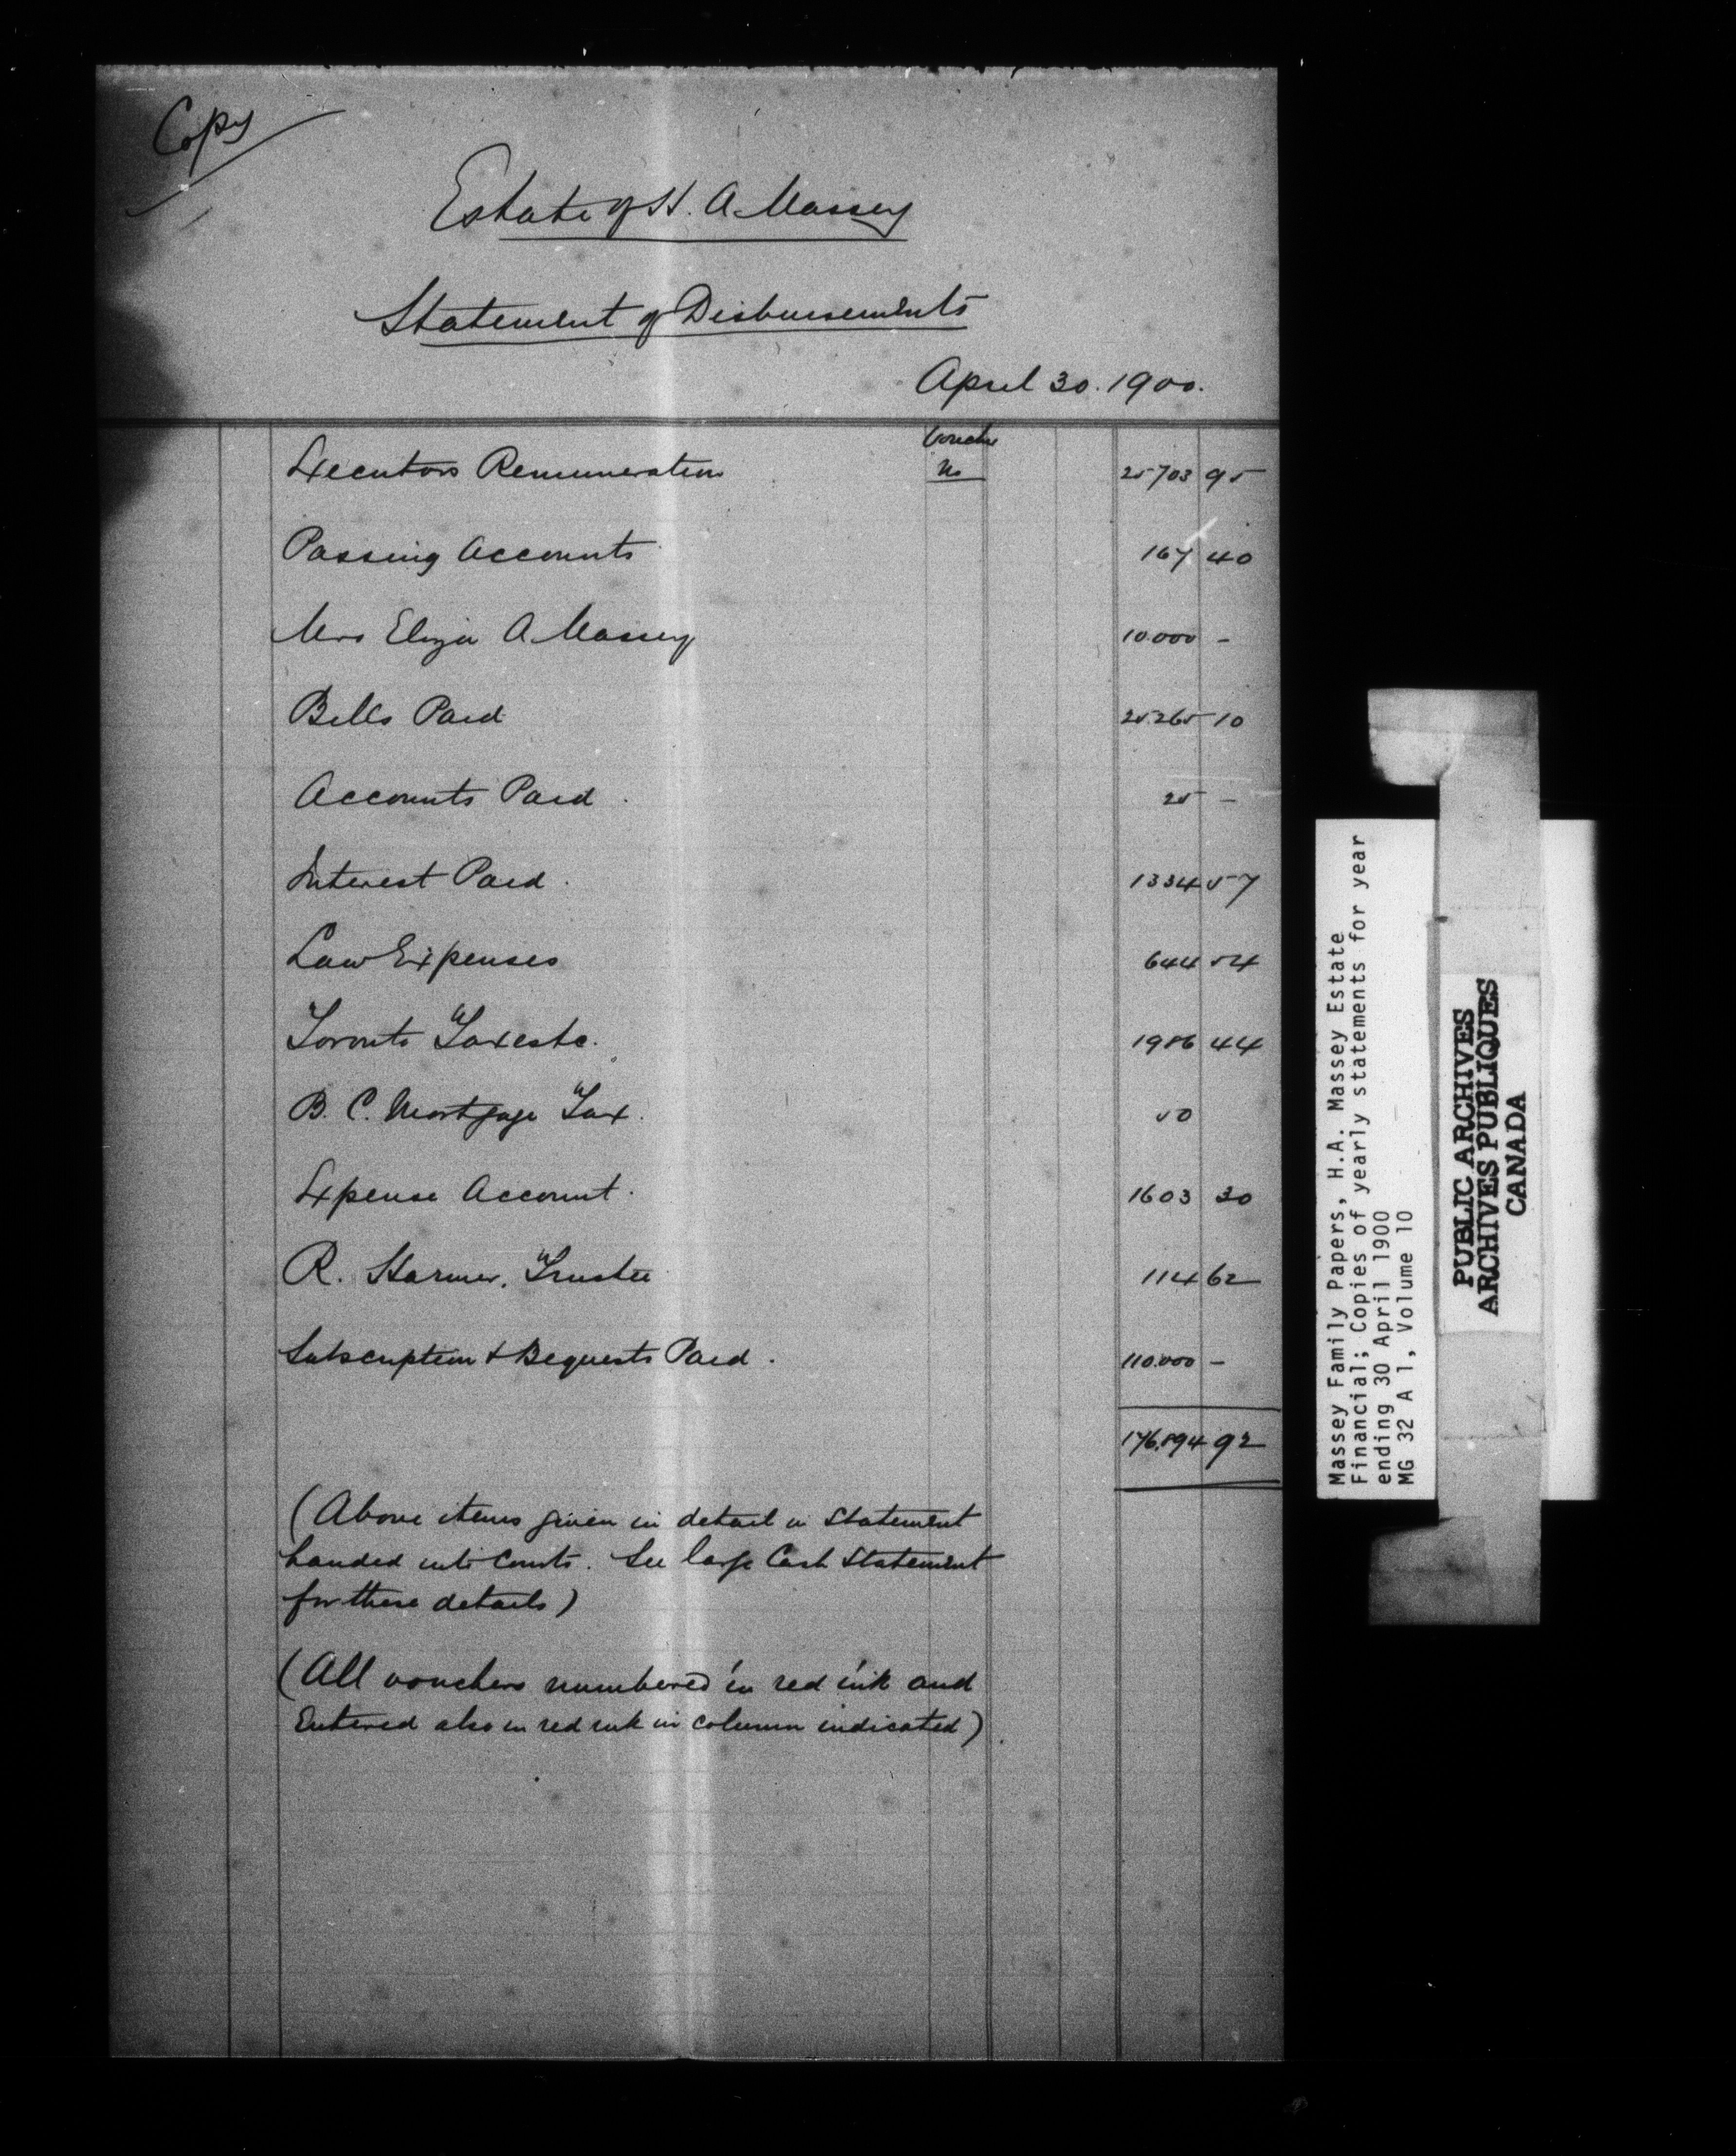 Copy
Estate of H. A. Massey
Statement of Disbursements
April 30. 1900.
Voucher
Executors Remuneration No 25703 95
Passing Accounts 167 40
Mrs Eliza A. Massey 10.000 -
Bills Paid 25.265 10
Accounts Paid. 25 -
Interest Paid. 1334 57
Law Expenses 644 54
Toronto Taxes etc. 1986 44
B. C. Mortgage Tax. 50
Expense Account. 1603 30
R. Harmer, Trustee 114 62
Subscription & Bequests Paid. 110.000 -
176,894 92
(Above items given in detail in Statement
handed into Courts. See large Cash Statement
for these details)
(All vouchers numbered in red ink and
Entered also in red ink in column indicated).
Massey Family Papers, H.A. Massey Estate
Financial; Copies of yearly statements for year
ending 30 April 1900
MG 32 A 1, Volume 10
PUBLIC ARCHIVES
ARCHIVES PUBLIQUES
CANADA